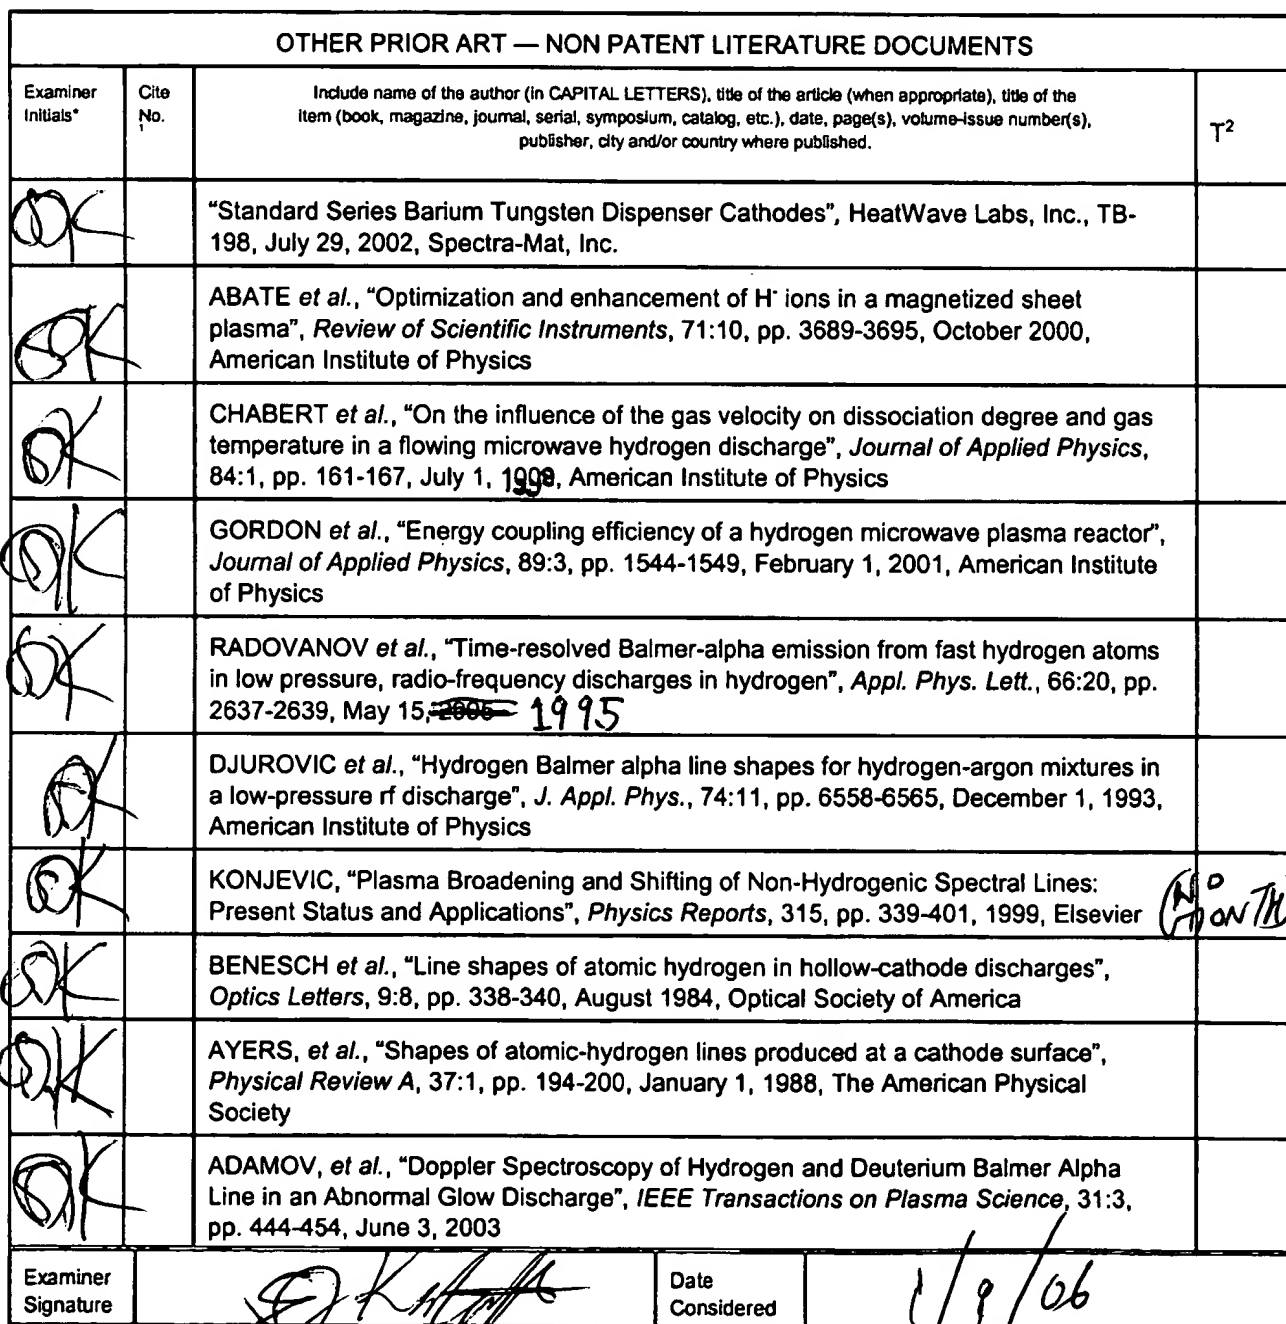 OTHER PRIOR ART — NON PATENT LITERATURE DOCUMENTS
Examiner Initials*
Cite No. 1
Include name of the author (in CAPITAL LETTERS), title of the article (when appropriate), title of the
item (book, magazine, journal, serial, symposium, catalog, etc.), date, page(s), volume-issue number(s),
publisher, city and/or country where published.
T²
"Standard Series Barium Tungsten Dispenser Cathodes", HeatWave Labs, Inc., TB-
198, July 29, 2002, Spectra-Mat, Inc.
ABATE et al., "Optimization and enhancement of H⁻ ions in a magnetized sheet
plasma", Review of Scientific Instruments, 71:10, pp. 3689-3695, October 2000,
American Institute of Physics
CHABERT et al., "On the influence of the gas velocity on dissociation degree and gas
temperature in a flowing microwave hydrogen discharge", Journal of Applied Physics,
84:1, pp. 161-167, July 1, 1998, American Institute of Physics
GORDON et al., "Energy coupling efficiency of a hydrogen microwave plasma reactor",
Journal of Applied Physics, 89:3, pp. 1544-1549, February 1, 2001, American Institute
of Physics
RADOVANOV et al., "Time-resolved Balmer-alpha emission from fast hydrogen atoms
in low pressure, radio-frequency discharges in hydrogen", Appl. Phys. Lett., 66:20, pp.
2637-2639, May 15, 1995
DJUROVIC et al., "Hydrogen Balmer alpha line shapes for hydrogen-argon mixtures in
a low-pressure rf discharge", J. Appl. Phys., 74:11, pp. 6558-6565, December 1, 1993,
American Institute of Physics
KONJEVIC, "Plasma Broadening and Shifting of Non-Hydrogenic Spectral Lines:
Present Status and Applications", Physics Reports, 315, pp. 339-401, 1999, Elsevier
(NO
MONTH
BENESCH et al., "Line shapes of atomic hydrogen in hollow-cathode discharges",
Optics Letters, 9:8, pp. 338-340, August 1984, Optical Society of America
AYERS, et al., "Shapes of atomic-hydrogen lines produced at a cathode surface",
Physical Review A, 37:1, pp. 194-200, January 1, 1988, The American Physical
Society
ADAMOV, et al., "Doppler Spectroscopy of Hydrogen and Deuterium Balmer Alpha
Line in an Abnormal Glow Discharge", IEEE Transactions on Plasma Science, 31:3,
pp. 444-454, June 3, 2003
Examiner
Signature
Date
Considered
1/9/06